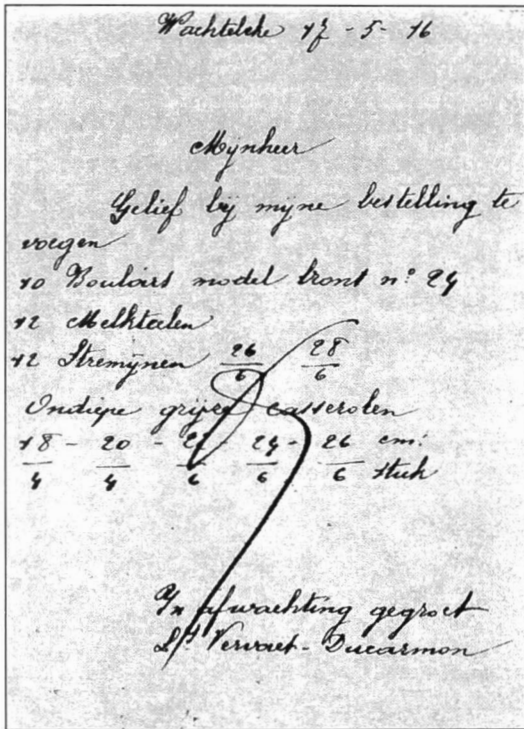 Wachtebeke 17 - 5 - 16
Mijnheer
Gelief bij myne bestelling te
voegen
10 Bouloirs model front n° 24
12 Melkteelen
12 Stremijnen 26/6 28/6
Ondiepe grijze casserolen
18/4 - 20/4 - 22/6 - 24/6 - 26/6 cm:
stuk
In afwachting gegroet
Vervaet-Ducarmon